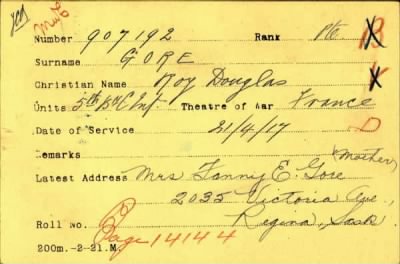 Number 907192 Rank Pte B
Surname GORE
Christian Name Roy Douglas
Units 5th Bn C Inf. Theatre of War France
Date of Service 21/4/17 D
Remarks
(Mother)
Latest Address Mrs Fanny E. Gore
2035 Victoria Ave.,
Regina, Sask
Roll No.
Page 14144
200m.-2-21.M.